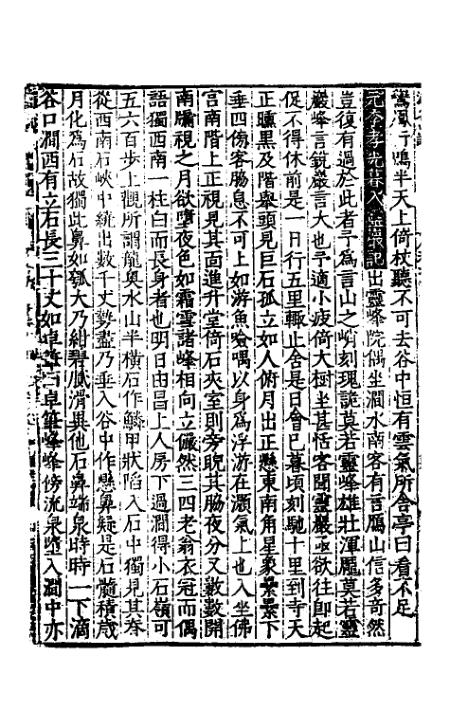 鸞鳳行鳴半天上倚杖聽不可去谷中恒有雲氣所舎亭曰看不足
元李孝光暮入靈巖記出靈峰院偶坐澗水南客有言鴈山信多奇然
豈復有過於此者乎爲言山之峭刻瑰詭莫若靈峰雄壯渾厖莫若靈
巖峰言銳巖言大也予適小疲倚大樹坐甚恬客聞靈巖亟欲往卽起
促不得休前是一日行五里輙止舍是日會已暮頃刻馳十里到寺天
正曛黒及階舉頭見巨石孤立如人俯月出正懸東南角星象纍纍下
垂四傍客膓息不可上如游魚噞喁以身爲浮游在灝氣上也入坐佛
宫南階上正視見其面進升堂倚石夾室則旁睨其脇夜分又數數開
南牖視之月欲墮夜色如霜雪諸峰相向立儼然三四老翁衣冠而偶
語獨西南一柱白而長身者也明日由昌上人房下過澗得小石嶺可
五六百步上觀所謂龍奥水山半橫石作鱗甲狀陷入石中獨見其脊
從西南石峽中統出數千丈勢盡乃垂入谷中作懸鼻疑是石髓積歳
月化爲石故獨此鼻如瓠大乃紺碧膩滑與他石鼻端泉時時一下滴
谷口澗西有立石長三十丈如卓筆曰卓筆峰峰傍流泉墮入澗中亦